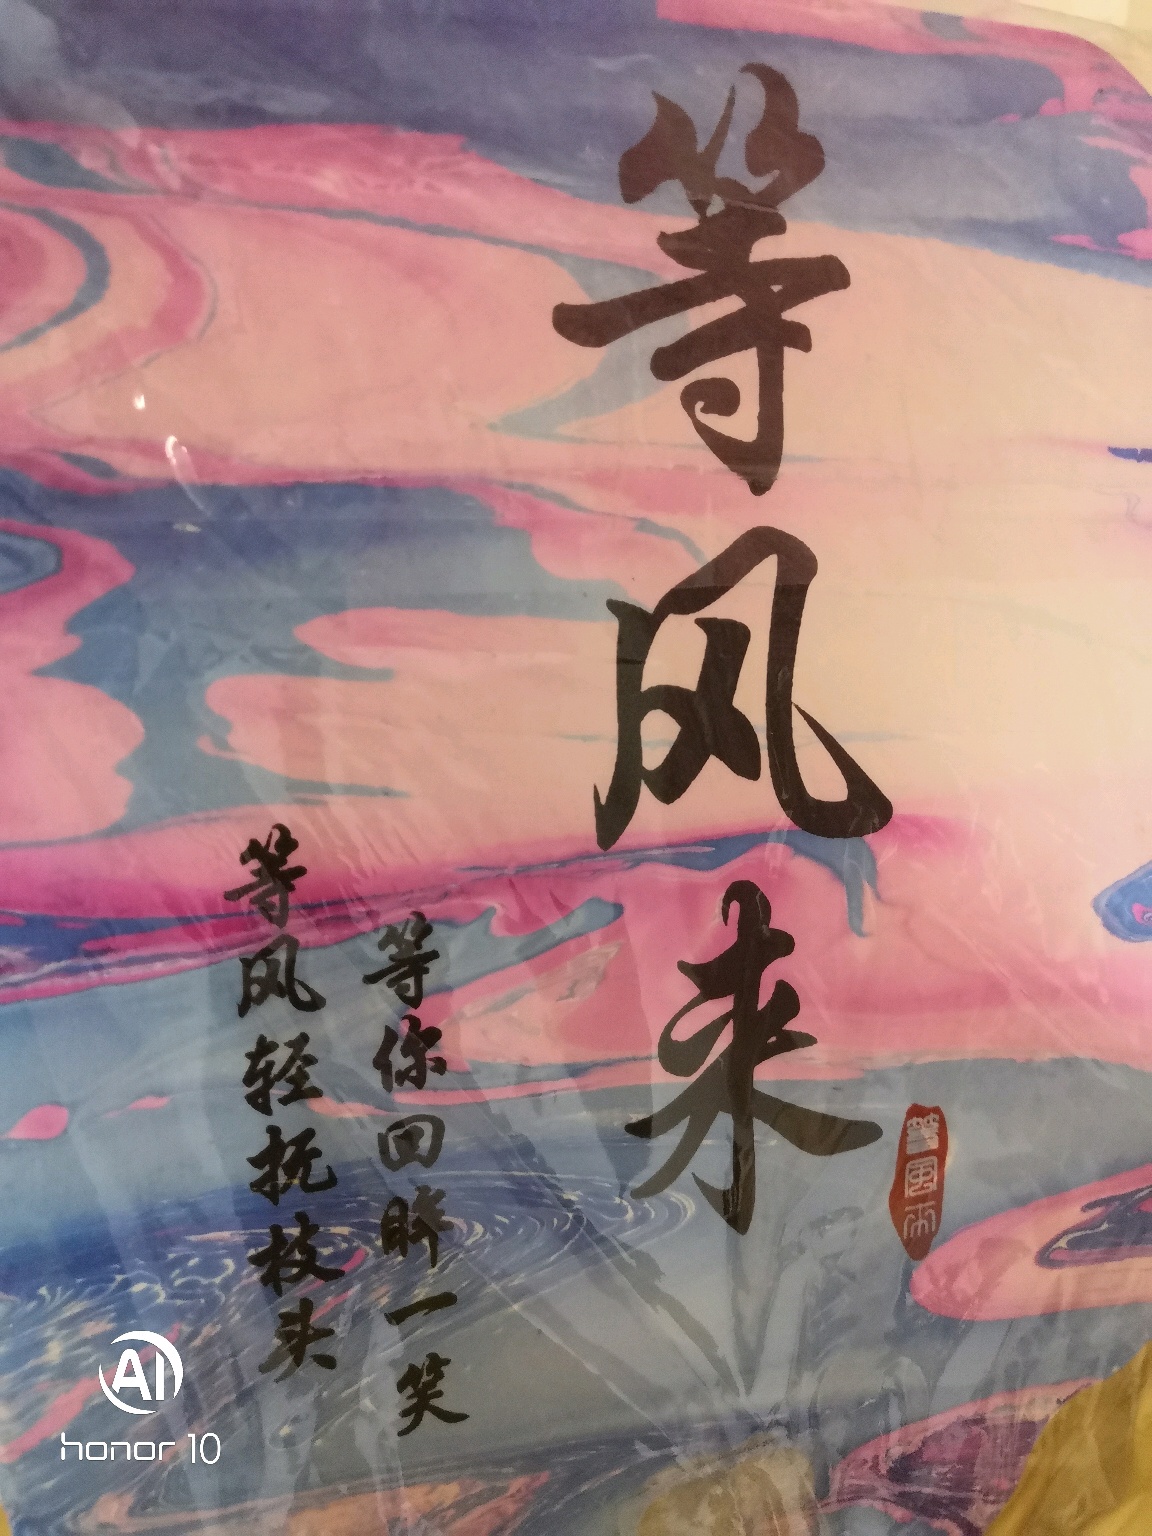 等风来
等风来
等你回眸一笑
等风轻抚枝头
AI
honor 10